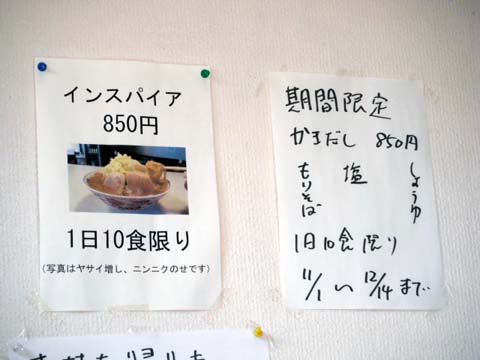 インスパイア
850円
1日10食限り
(写真はヤサイ増し、ニンニクのせです)
期間限定
かまだし 850円
もりそば 塩 しょうゆ
1日10食限り
11/1 〜 12/14まで